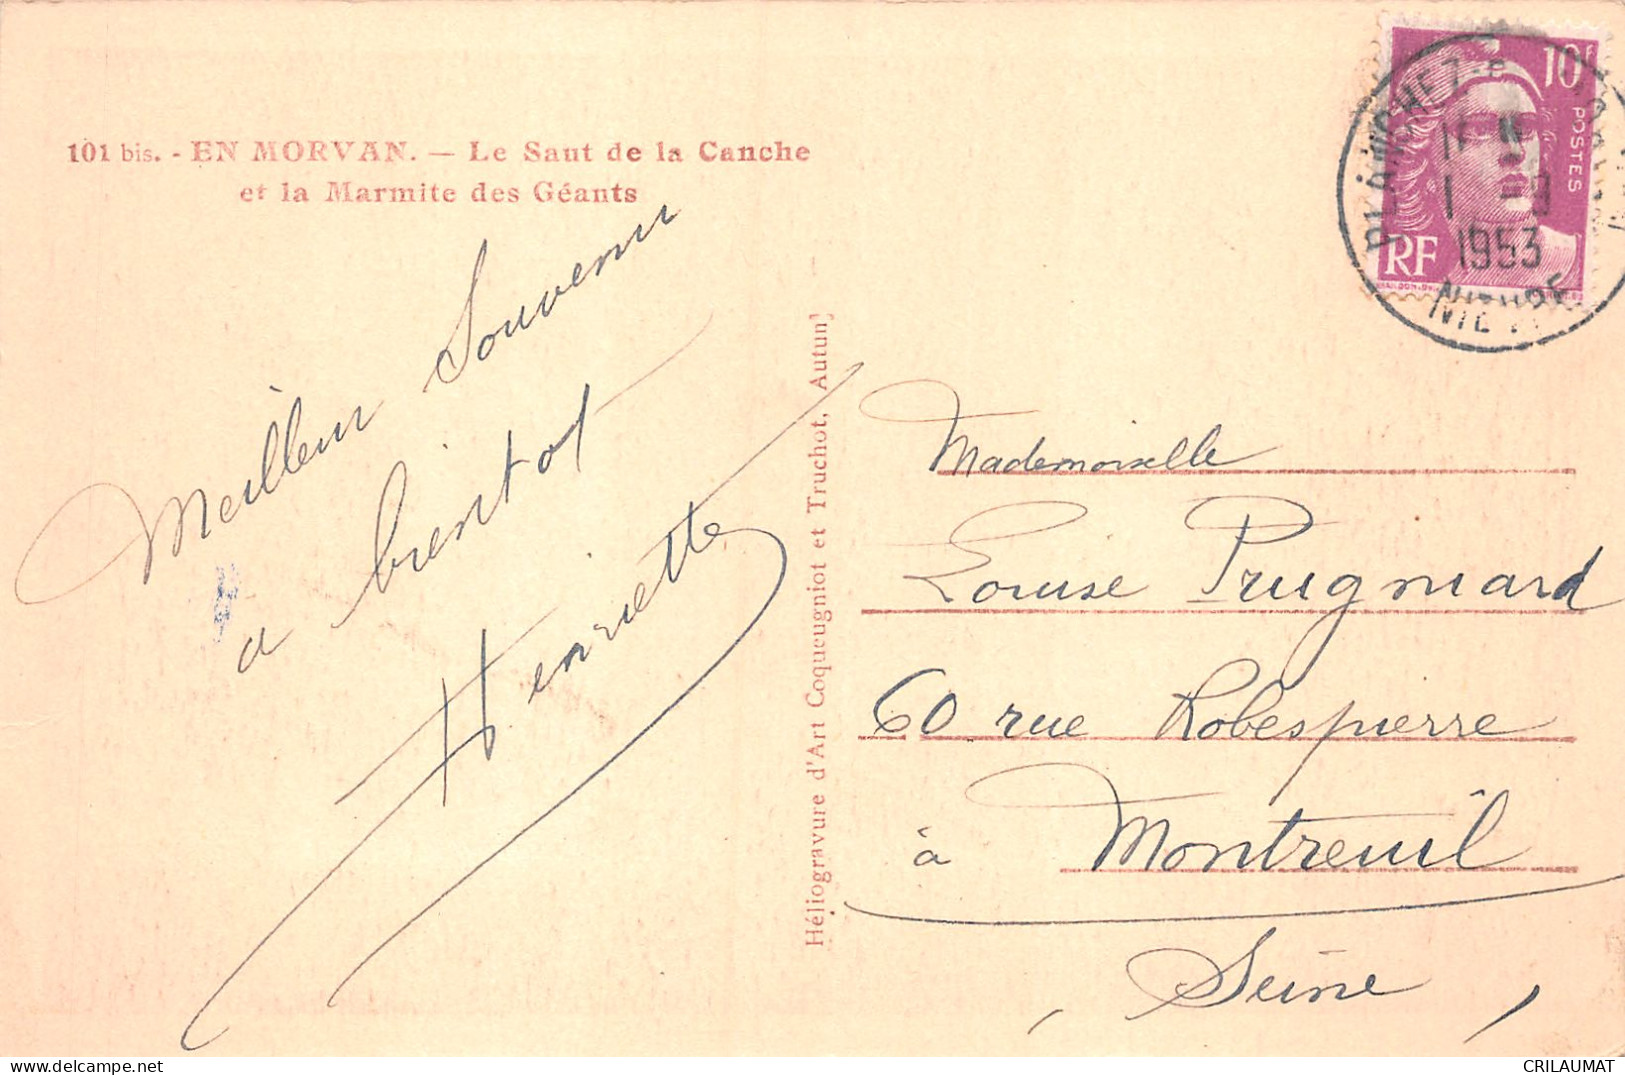 101 bis. - EN MORVAN. — Le Saut de la Canche
et la Marmite des Géants
Meilleur Souvenir
a bientot
Henriette
Héliogravure d'Art Coqueugniot et Truchot, Autun
10F
POSTES
RF
1953
NIÈVRE
Mademoiselle
Louise Prugniard
60 rue Robespierre
à Montreuil
Seine
CRILAUMAT